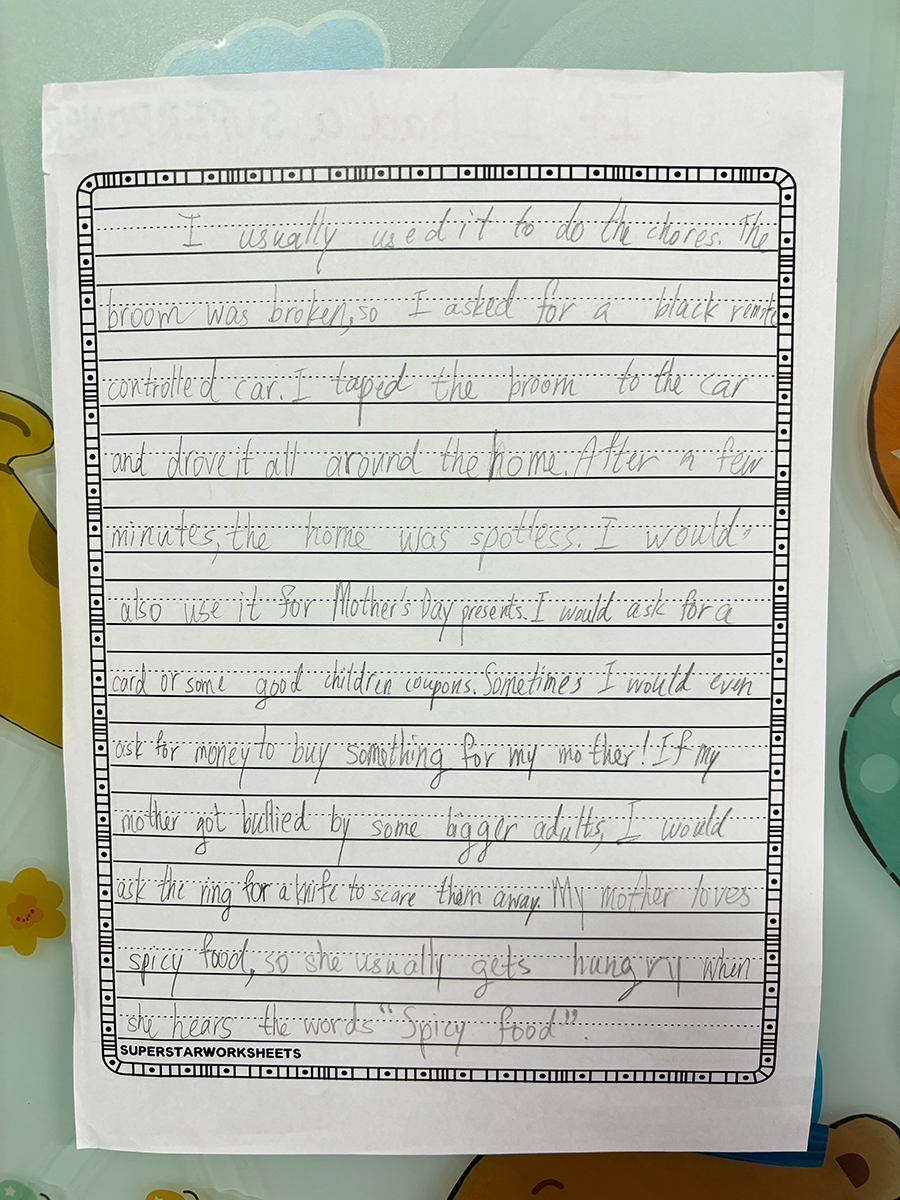 I usually used it to do the chores. The
broom was broken, so I asked for a black remote
controlled car. I taped the broom to the car
and drove it all around the home. After a few
minutes, the home was spotless. I would
also use it for Mother's Day presents. I would ask for a
card or some good children coupons. Sometimes I would even
ask for money to buy something for my mother! If my
mother got bullied by some bigger adults, I would
ask the ring for a knife to scare them away. My mother loves
spicy food, so she usually gets hungry when
she hears the words "Spicy food".
SUPERSTARWORKSHEETS